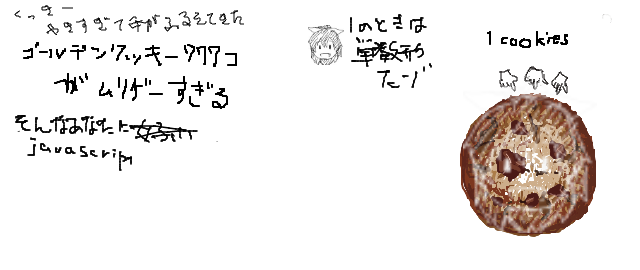 くっきー
やきすぎて手がふるえてきた
ゴールデンクッキー777コ
がムリゲーすぎる
そんなあなたに
javascript
1のときは
単数形
だー!
1 cookies